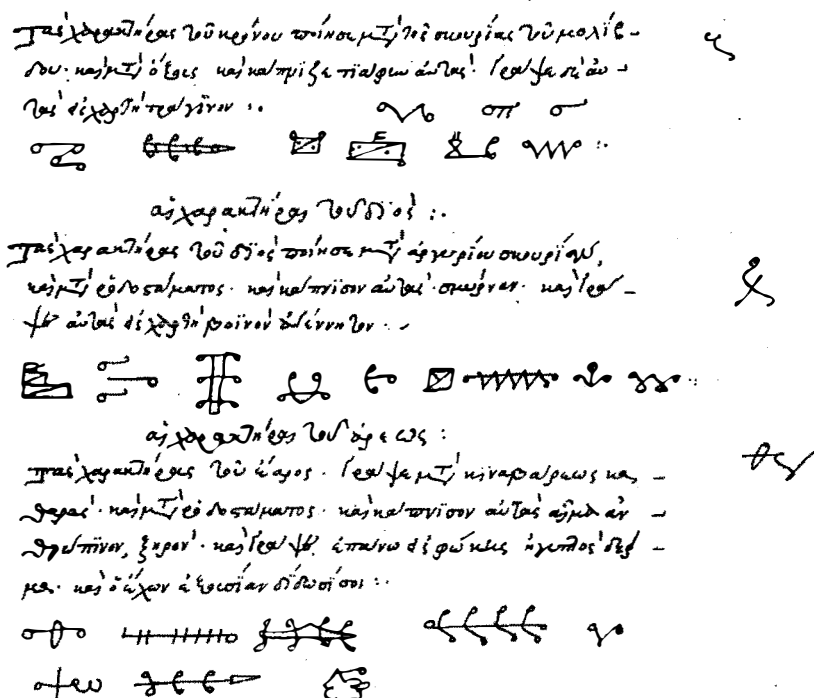 τὰς χαρακτῆρας τοῦ κρόνου ποίησε μετὰ τὸς σκουρίας τοῦ μολίβ-
δου· καὶ μετὰ ὄξος καὶ κάπνιζε αὐτάς· γράψε δὲ αὐ-
τὰς εἰς χαρτὴν τραγεῖνον :·
αἱ χαρακτῆρας τοῦ διός :·
τὰς χαρακτῆρας τοῦ διὸς ποίησε μετὰ ἀργυρίου σκουρίαν,
καὶ μετὰ ῥόδοσταματος· καὶ κάπνισον αὐτάς· σμύρναν· καὶ γρά-
ψε αὐτὰς εἰς χαρτὴν βοϊνὸν ἀγέννητον ·
αἱ χαρακτῆρας τοῦ ἄρεως :
τὰς χαρακτῆρας τοῦ ἄρεος· γράψε μετὰ κιναβάρεως κα-
θαρᾶς· καὶ μετὰ ῥόδοσταματος· καὶ κάπνισον αὐτὰς αἷμα ἀν-
θρώπινον, ξηρόν· καὶ γράψε ἐπάνω εἰς φώκιας δέρ-
μα· καὶ ὁ ἔχων ἐξουσίαν δίδωσί σοι :·